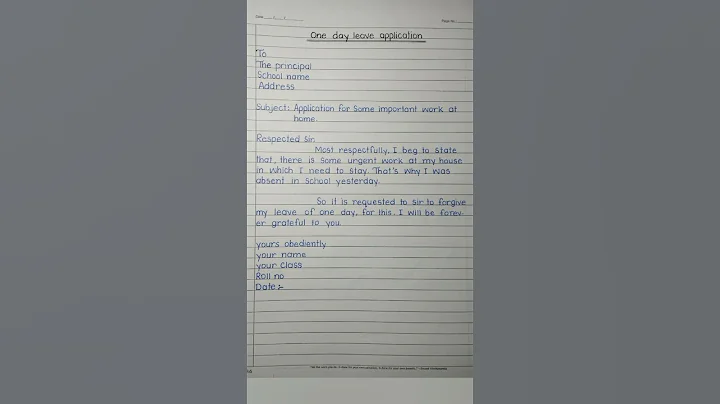 Date
Page No.
One day leave application
To
The principal
School name
Address
Subject: Application for some important work at
home.
Respected Sir,
Most respectfully, I beg to state
that, there is some urgent work at my house
in which I need to stay. That's why I was
absent in school yesterday.
So it is requested to sir to forgive
my leave of one day, for this, I will be forev-
er grateful to you.
yours obediently
your name
your class
Roll no
Date:-